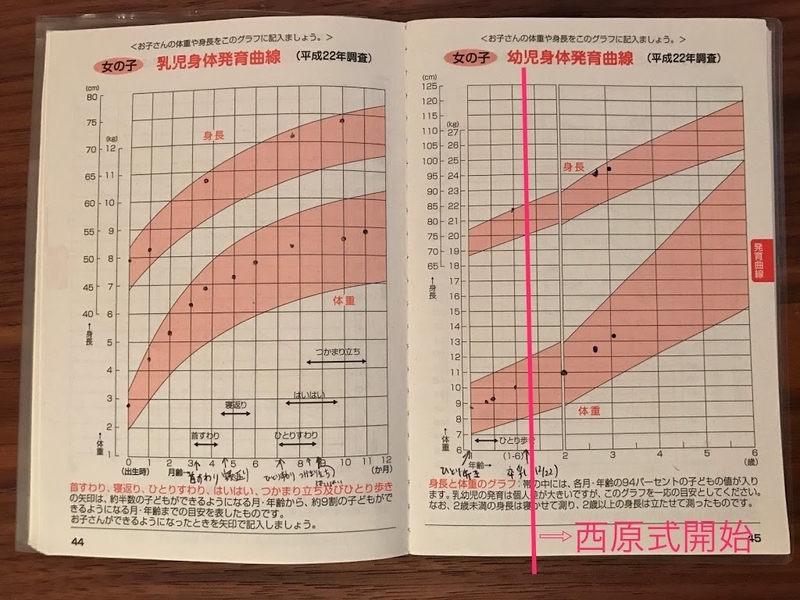 <お子さんの体重や身長をこのグラフに記入しましょう。>
女の子 乳児身体発育曲線 (平成22年調査)
(cm)
80
75
70
65
60
55
50
45
40
↑身長
(kg)
12
11
10
9
8
7
6
5
4
3
2
1
↑体重
身長
体重
つかまり立ち
はいはい
寝返り
首すわり
ひとりすわり
0 1 2 3 4 5 6 7 8 9 10 11 12
(出生時) 月齢→ (か月)
首すわり 寝返り
首すわり、寝返り、ひとりすわり、はいはい、つかまり立ち及びひとり歩き
の矢印は、約半数の子どもができるようになる月・年齢から、約9割の子どもがで
きるようになる月・年齢までの目安を表したものです。
お子さんができるようになったときを矢印で記入しましょう。
44
<お子さんの体重や身長をこのグラフに記入しましょう。>
女の子 幼児身体発育曲線 (平成22年調査)
(cm)
125
120
115
110
105
100
95
90
85
80
75
70
65
↑身長
(kg)
27
26
25
24
23
22
21
20
19
18
17
16
15
14
13
12
11
10
9
8
7
6
↑体重
身長
体重
ひとり歩き
(1-6) 2 3 4 5 6
年齢→ (歳)
発育曲線
身長と体重のグラフ:帯の中には、各月・年齢の94パーセントの子どもの値が入り
ます。乳幼児の発育は個人差が大きいですが、このグラフを一応の目安としてください。
なお、2歳未満の身長は寝かせて測り、2歳以上の身長は立たせて測ったものです。
⇨西原式開始
45